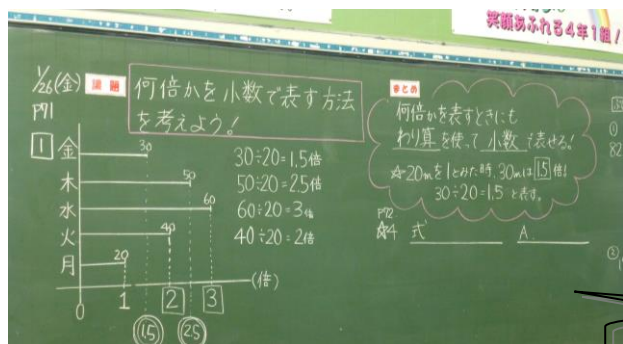 笑顔あふれる4年1組!
1/26(金)
P91
課題
何倍かを小数で表す方法
を考えよう!
1
金 30
木 50
水 60
火 40
月 20
0 1 2 3 (倍)
1.5 2.5
30÷20=1.5倍
50÷20=2.5倍
60÷20=3倍
40÷20=2倍
まとめ
何倍かを表すときにも
わり算を使って小数で表せる!
☆20mを1とみた時、30mは1.5倍!
30÷20=1.5 と表す。
P92
☆4 式 A.
①
82
②